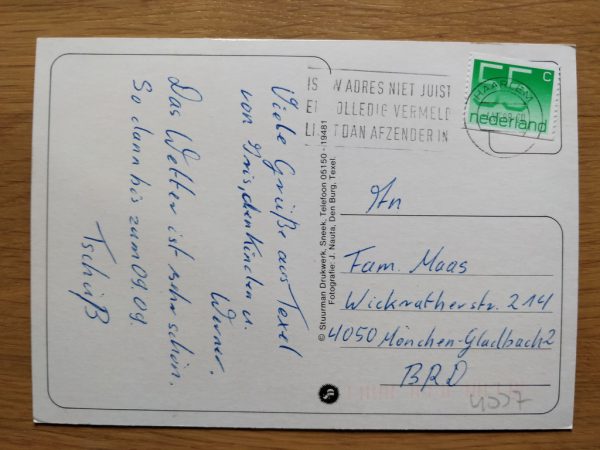 Viele Grüße aus Texel
von Iris, den Kindern u.
Werner.
Das Wetter ist sehr schön.
So dann bis zum 09.09.
Tschüß
© Stuurman Drukwerk, Sneek, Telefoon 05150 - 19481
Fotografie: J. Nauta, Den Burg, Texel.
IS UW ADRES NIET JUIST
EN VOLLEDIG VERMELD
LICHT DAN AFZENDER IN
HAARLEM
55 c
nederland
An
Fam. Maas
Wickratherstr. 214
4050 Mönchen-Gladbach 2
BRD